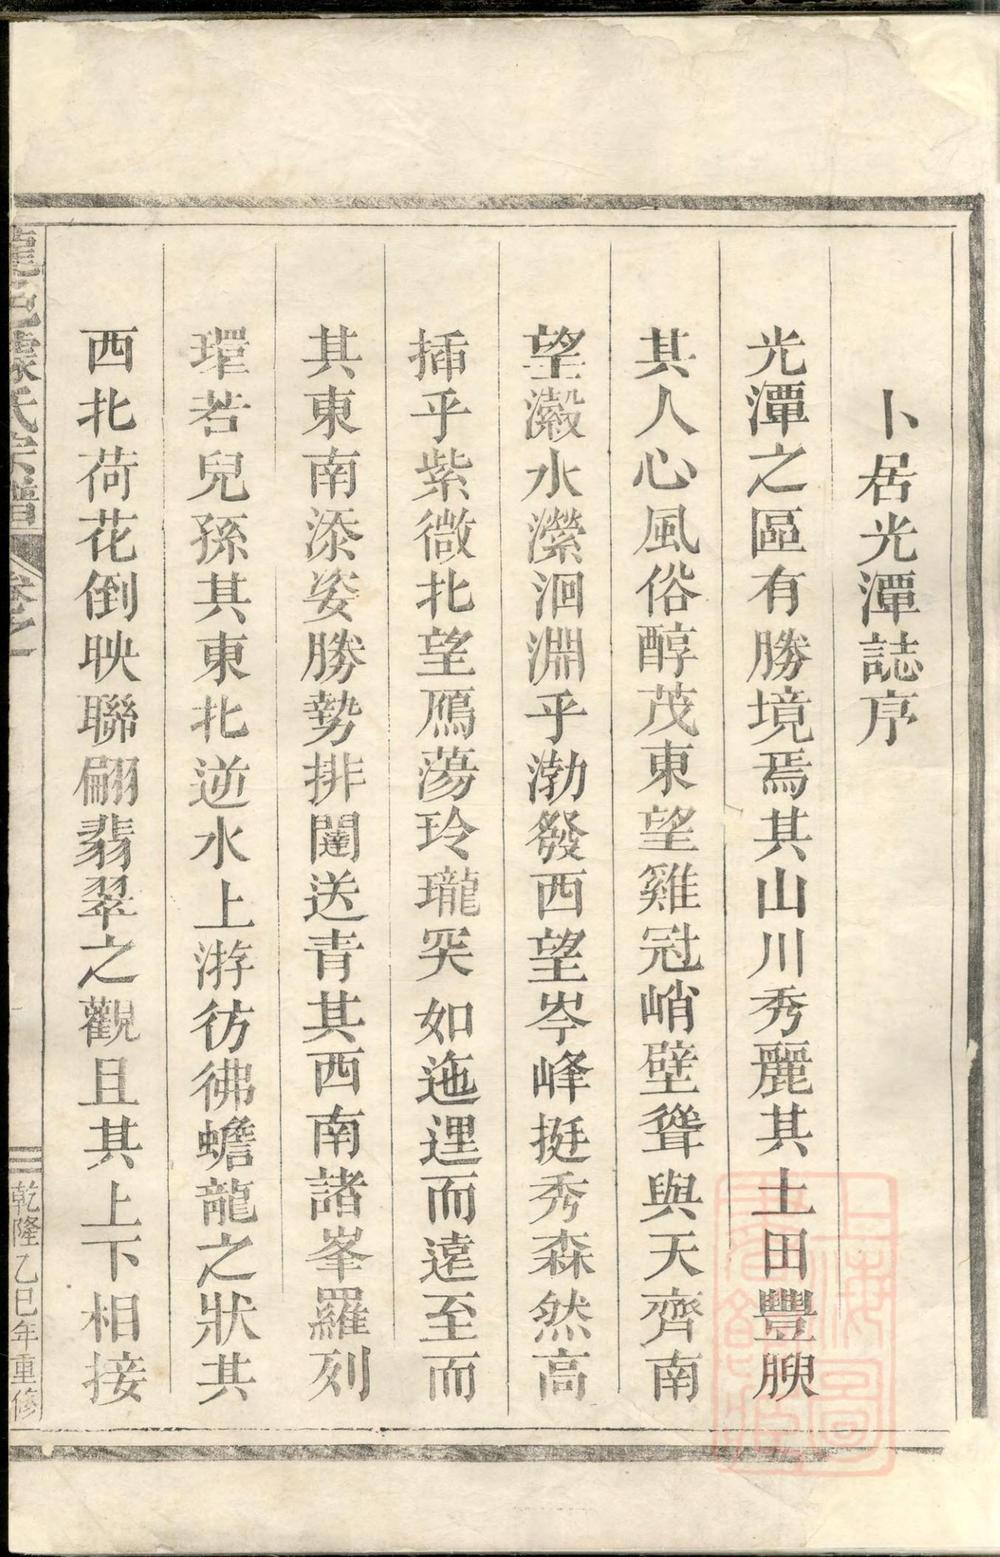 卜居光潭誌序
光潭之區有勝境焉其山川秀麗其土田豐腴
其人心風俗醇茂東望雞冠峭壁聳與天齊南
望瀫水瀠洄淵乎渤發西望岑峰挺秀森然高
插乎紫微北望鴈蕩玲瓏突如迤逦而遠至而
其東南添姿勝勢排闥送青其西南諸峯羅列
環若兒孫其東北逆水上游彷彿蟾龍之狀其
西北荷花倒映聯翩翡翠之觀且其上下相接
氏宗譜
卷之一
乾隆乙巳年重修
上海圖